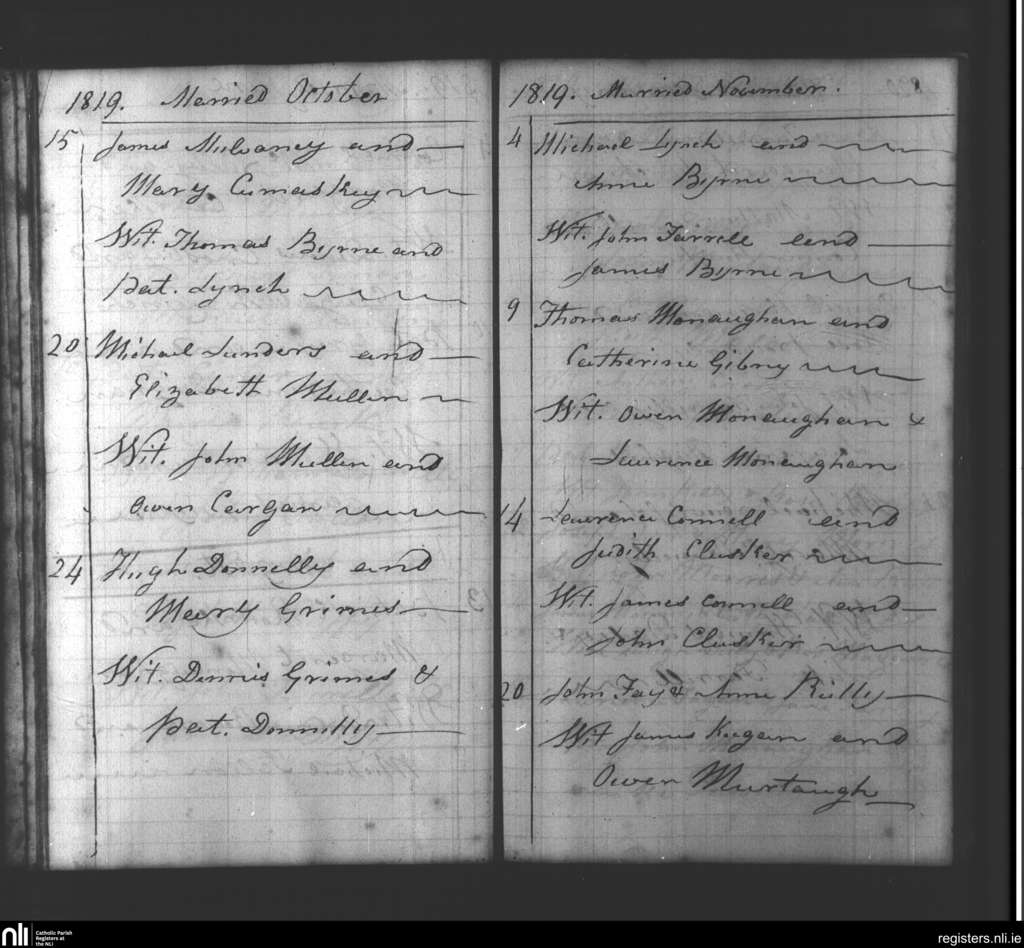 1819. Married October
15 James Mulvaney and
Mary Cumaskey
Wit. Thomas Byrne and
Pat. Lynch
20 Michael Sanders and
Elizabeth Mullen
Wit. John Mullen and
Owen Cargan
24 Hugh Donnelly and
Mary Grimes
Wit. Dennis Grimes &
Pat. Donnelly
1819. Married November.
4 Michael Lynch and
Anne Byrne
Wit. John Farrele and
James Byrne
9 Thomas Monaughan and
Catherine Gibny
Wit. Owen Monaughan &
Laurence Monaughan
14 Lawrence Connell and
Judith Clusker
Wit. James Connell and
John Clusker
20 John Fay & Anne Reilly
Wit James Keegan and
Owen Murtaugh
nli Catholic Parish
Registers at
the NLI
registers.nli.ie